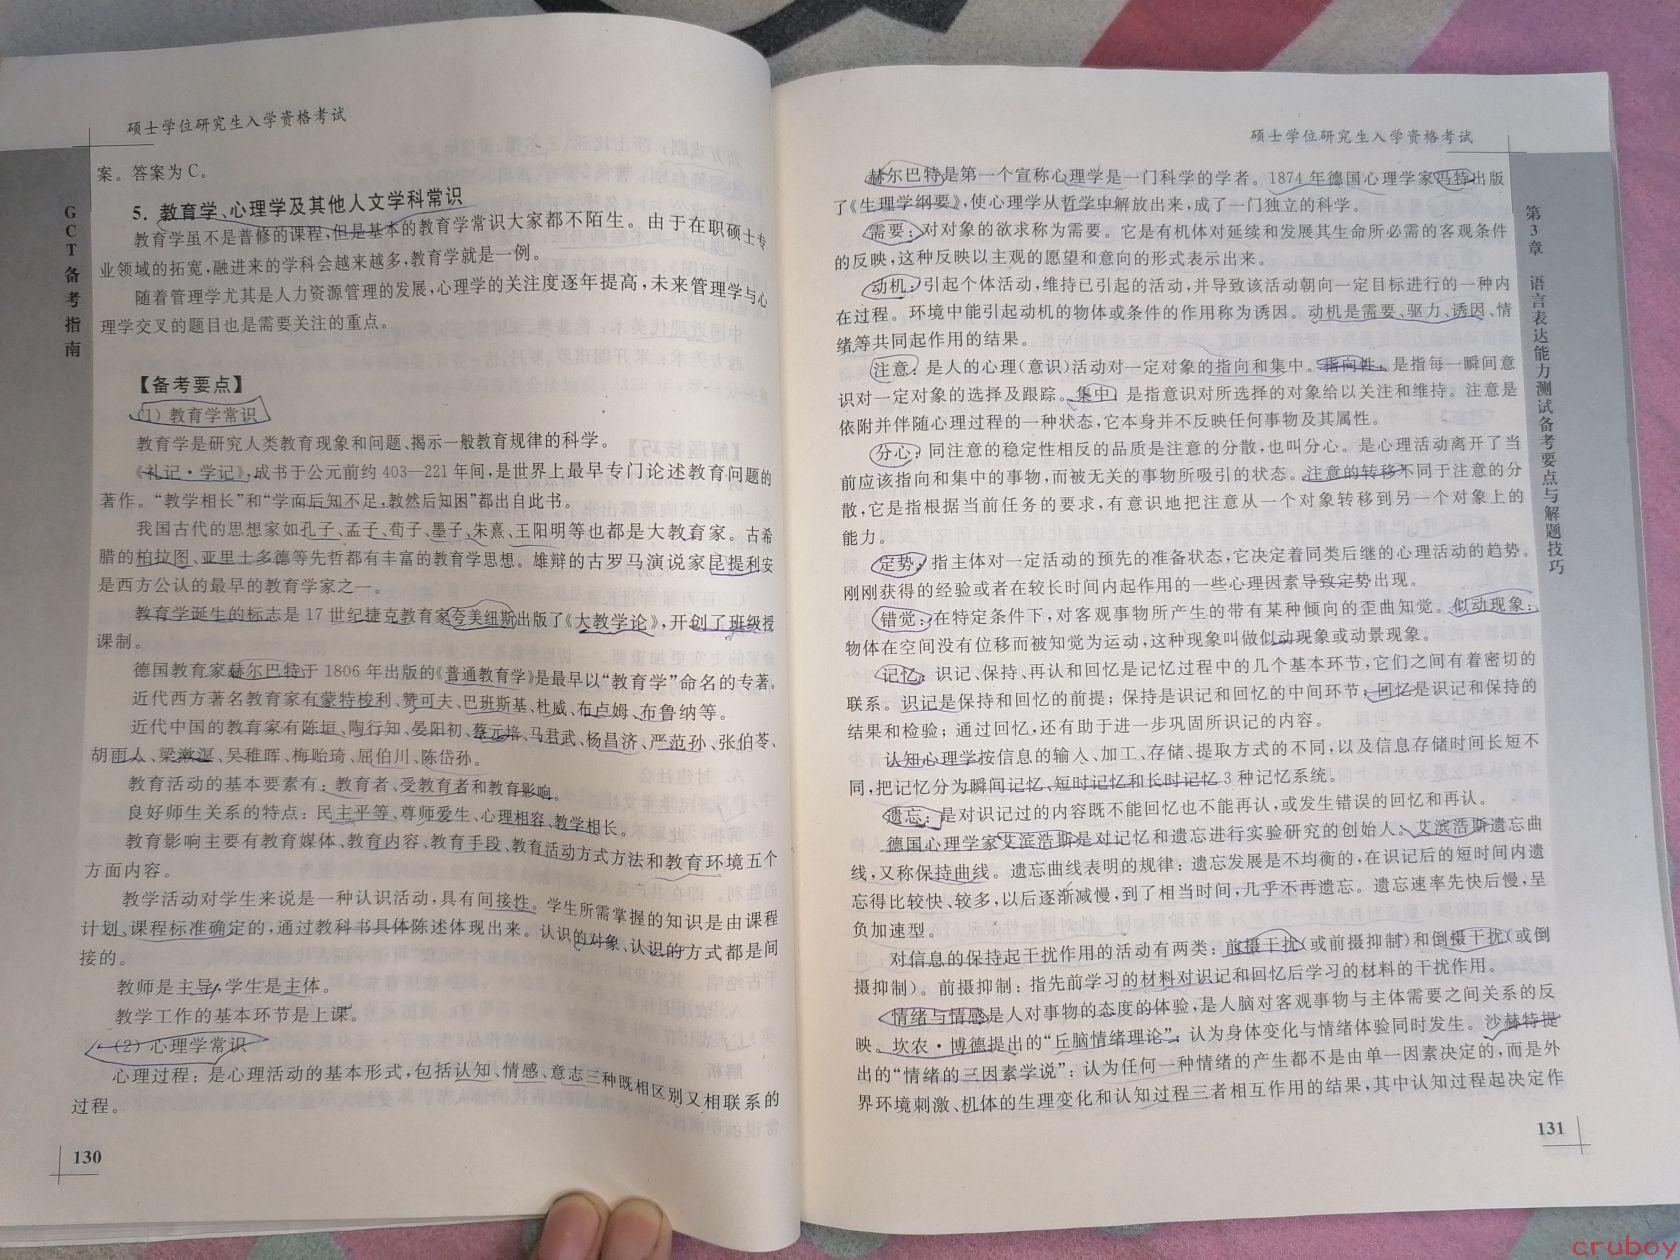 硕士学位研究生入学资格考试
GCT备考指南
案。答案为C。
5. 教育学、心理学及其他人文学科常识
教育学虽不是普修的课程,但是基本的教育学常识大家都不陌生。由于在职硕士专
业领域的拓宽,融进来的学科会越来越多,教育学就是一例。
随着管理学尤其是人力资源管理的发展,心理学的关注度逐年提高,未来管理学与心
理学交叉的题目也是需要关注的重点。
【备考要点】
(1) 教育学常识
教育学是研究人类教育现象和问题、揭示一般教育规律的科学。
《礼记·学记》,成书于公元前约403—221年间,是世界上最早专门论述教育问题的
著作。“教学相长”和“学而后知不足,教然后知困”都出自此书。
我国古代的思想家如孔子、孟子、荀子、墨子、朱熹、王阳明等也都是大教育家。古希
腊的柏拉图、亚里士多德等先哲都有丰富的教育学思想。雄辩的古罗马演说家昆提利安
是西方公认的最早的教育学家之一。
教育学诞生的标志是17世纪捷克教育家夸美纽斯出版了《大教学论》,开创了班级授
课制。
德国教育家赫尔巴特于1806年出版的《普通教育学》是最早以“教育学”命名的专著。
近代西方著名教育家有蒙特梭利、赞可夫、巴班斯基、杜威、布卢姆、布鲁纳等。
近代中国的教育家有陈垣、陶行知、晏阳初、蔡元培、马君武、杨昌济、严范孙、张伯苓、
胡雨人、梁漱溟、吴稚晖、梅贻琦、屈伯川、陈岱孙。
教育活动的基本要素有:教育者、受教育者和教育影响。
良好师生关系的特点:民主平等、尊师爱生、心理相容、教学相长。
教育影响主要有教育媒体、教育内容、教育手段、教育活动方式方法和教育环境五个
方面内容。
教学活动对学生来说是一种认识活动,具有间接性。学生所需掌握的知识是由课程
计划、课程标准确定的,通过教科书具体陈述体现出来。认识的对象、认识的方式都是间
接的。
教师是主导,学生是主体。
教学工作的基本环节是上课。
(2) 心理学常识
心理过程:是心理活动的基本形式,包括认知、情感、意志三种既相区别又相联系的
过程。
130
硕士学位研究生入学资格考试
第3章 语言表达能力测试备考要点与解题技巧
赫尔巴特是第一个宣称心理学是一门科学的学者。1874年德国心理学家冯特出版
了《生理学纲要》,使心理学从哲学中解放出来,成了一门独立的科学。
需要:对对象的欲求称为需要。它是有机体对延续和发展其生命所必需的客观条件
的反映,这种反映以主观的愿望和意向的形式表示出来。
动机:引起个体活动,维持已引起的活动,并导致该活动朝向一定目标进行的一种内
在过程。环境中能引起动机的物体或条件的作用称为诱因。动机是需要、驱力、诱因、情
绪等共同起作用的结果。
注意:是人的心理(意识)活动对一定对象的指向和集中。指向性,是指每一瞬间意
识对一定对象的选择及跟踪。集中,是指意识对所选择的对象给以关注和维持。注意是
依附并伴随心理过程的一种状态,它本身并不反映任何事物及其属性。
分心:同注意的稳定性相反的品质是注意的分散,也叫分心。是心理活动离开了当
前应该指向和集中的事物,而被无关的事物所吸引的状态。注意的转移不同于注意的分
散,它是指根据当前任务的要求,有意识地把注意从一个对象转移到另一个对象上的
能力。
定势:指主体对一定活动的预先的准备状态,它决定着同类后继的心理活动的趋势。
刚刚获得的经验或者在较长时间内起作用的一些心理因素导致定势出现。
错觉:在特定条件下,对客观事物所产生的带有某种倾向的歪曲知觉。似动现象:
物体在空间没有位移而被知觉为运动,这种现象叫做似动现象或动景现象。
记忆:识记、保持、再认和回忆是记忆过程中的几个基本环节,它们之间有着密切的
联系。识记是保持和回忆的前提;保持是识记和回忆的中间环节;回忆是识记和保持的
结果和检验;通过回忆,还有助于进一步巩固所识记的内容。
认知心理学按信息的输入、加工、存储、提取方式的不同,以及信息存储时间长短不
同,把记忆分为瞬间记忆、短时记忆和长时记忆3种记忆系统。
遗忘:是对识记过的内容既不能回忆也不能再认,或发生错误的回忆和再认。
德国心理学家艾滨浩斯是对记忆和遗忘进行实验研究的创始人。艾滨浩斯遗忘曲
线,又称保持曲线。遗忘曲线表明的规律:遗忘发展是不均衡的,在识记后的短时间内遗
忘得比较快、较多,以后逐渐减慢,到了相当时间,几乎不再遗忘。遗忘速率先快后慢,呈
负加速型。
对信息的保持起干扰作用的活动有两类:前摄干扰(或前摄抑制)和倒摄干扰(或倒
摄抑制)。前摄抑制:指先前学习的材料对识记和回忆后学习的材料的干扰作用。
情绪与情感是人对事物的态度的体验,是人脑对客观事物与主体需要之间关系的反
映。坎农·博德提出的“丘脑情绪理论”:认为身体变化与情绪体验同时发生。沙赫特提
出的“情绪的三因素学说”:认为任何一种情绪的产生都不是由单一因素决定的,而是外
界环境刺激、机体的生理变化和认知过程三者相互作用的结果,其中认知过程起决定作
131
cruboy